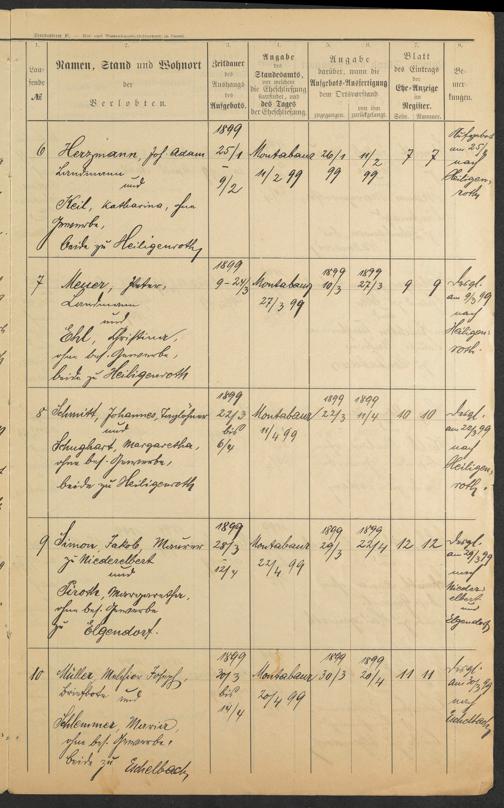 1.
2.
3.
4.
5.
6.
7.
8.
Lau-
fende
№
Namen, Stand und Wohnort
der
Verlobten.
Zeitdauer
des
Aushangs
des
Aufgebots.
Angabe
des
Standesamts,
vor welchem
die Eheschließung
stattfindet, und
des Tages
der Eheschließung.
Angabe
darüber, wann die
Aufgebots-Ausfertigung
dem Ortsvorstand
zugegangen.
von ihm
zurückgelangt.
Blatt
des Eintrags
der
Ehe-Anzeige
im
Register.
Seite. Nummer.
Be-
mer-
kungen.
6
Herzmann, Joh. Adam
Landmann
und
Keil, Katharina, ohne
Gewerbe,
beide zu Heiligenroth
1899
25/1
–
9/2
Montabaur
11/2 99
26/1
99
11/2
99
7 7
am 25/1
nach
Heiligen-
roth
7
Meuer, Peter,
Landmann
und
Ehl, Christina,
ohne bes. Gewerbe,
beide zu Heiligenroth
1899
9-24/3
Montabaur
27/3 99
1899
10/3
1899
27/3
9 9
Desgl.
am 9/3 99
nach
Heiligen-
roth.
8
Schmitt, Johannes, Taglöhner
und
Schughart, Margaretha,
ohne bes. Gewerbe,
beide zu Heiligenroth
1899
22/3
bis
6/4
Montabaur
11/4 99
1899
22/3
1899
11/4
10 10
Desgl.
am 22/3 99
nach
Heiligen-
roth.
9
Simon, Jakob, Maurer
zu Niederelbert
und
Piroth, Margaretha,
ohne bes. Gewerbe
zu Elgendorf.
1899
28/3
12/4
Montabaur
22/4 99
1899
29/3
1899
22/4
12 12
Desgl.
am 29/3 99
nach
Nieder-
elbert
und
Elgendorf
10
Müller, Melchior Joseph,
Briefbote und
Schlemmer, Maria,
ohne bes. Gewerbe,
beide zu Eschelbach
1899
30/3
bis
14/4
Montabaur
20/4 99
1899
30/3
1899
20/4
11 11
Desgl.
am 30/3 99
nach
Eschelbach